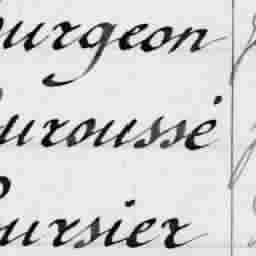 ourgeon
uroussé
oursier